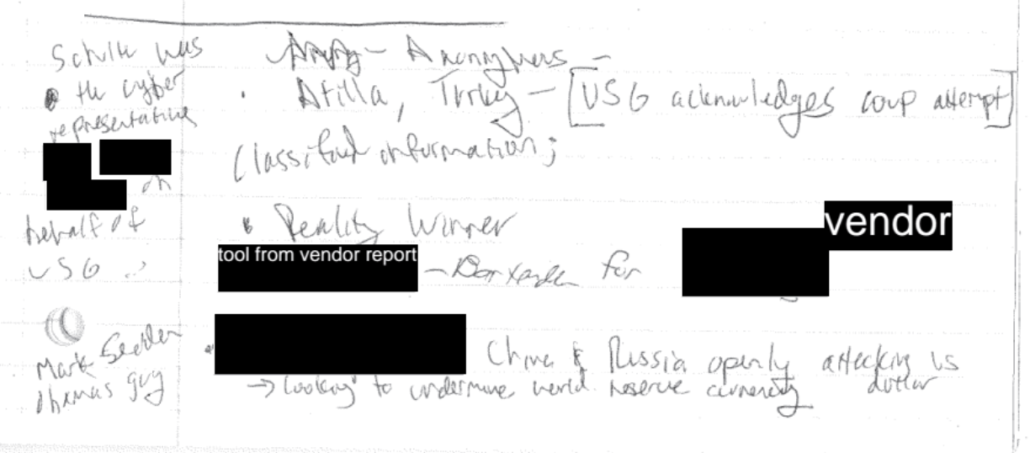 Schulte was
the cyber
representative
on
behalf of
USG
Mark
guy
Anonymous -
· Atilla, Turkey - [USG acknowledges coup attempt]
Classified information;
· Reality Winner
tool from vendor report - for vendor
China & Russia openly attacking us
→ looking to undermine world reserve currency dollar